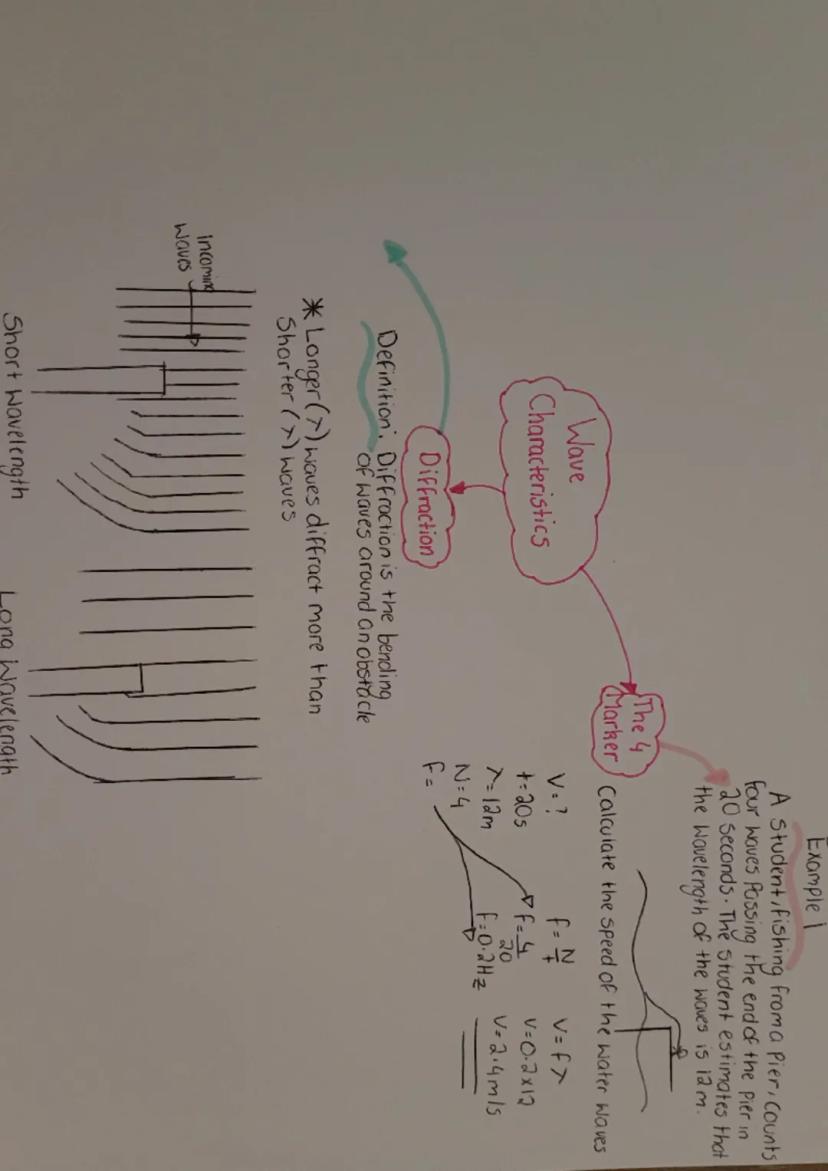 Example 1
A Student, fishing from a Pier, counts
four waves Passing the end of the Pier in
20 Seconds. The Student estimates that
the wavelength of the waves is 12m.
The 4
Marker
Calculate the speed of the water waves
V = ?
t = 20s
λ = 12m
N = 4
F =
f = N/t
f = 4/20
f = 0.2Hz
V = fλ
V = 0.2x12
V = 2.4m/s
Wave
Characteristics
Diffraction
Definition: Diffraction is the bending
of waves around an obstacle
* Longer (λ) waves diffract more than
Shorter (λ) waves
incoming
waves
Short wavelength
Long wavelength